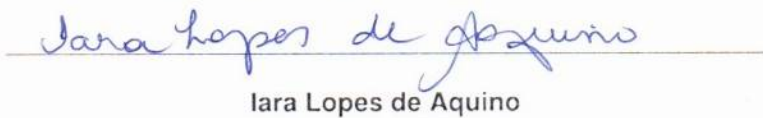 Iara Lopes de Aquino
Iara Lopes de Aquino